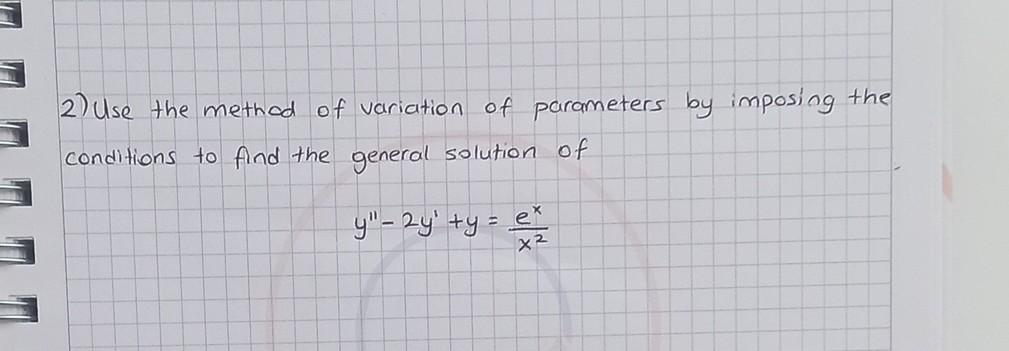 2) Use the method of variation of parameters by imposing the
conditions to find the general solution of
y'' - 2y' + y = e^x / x^2